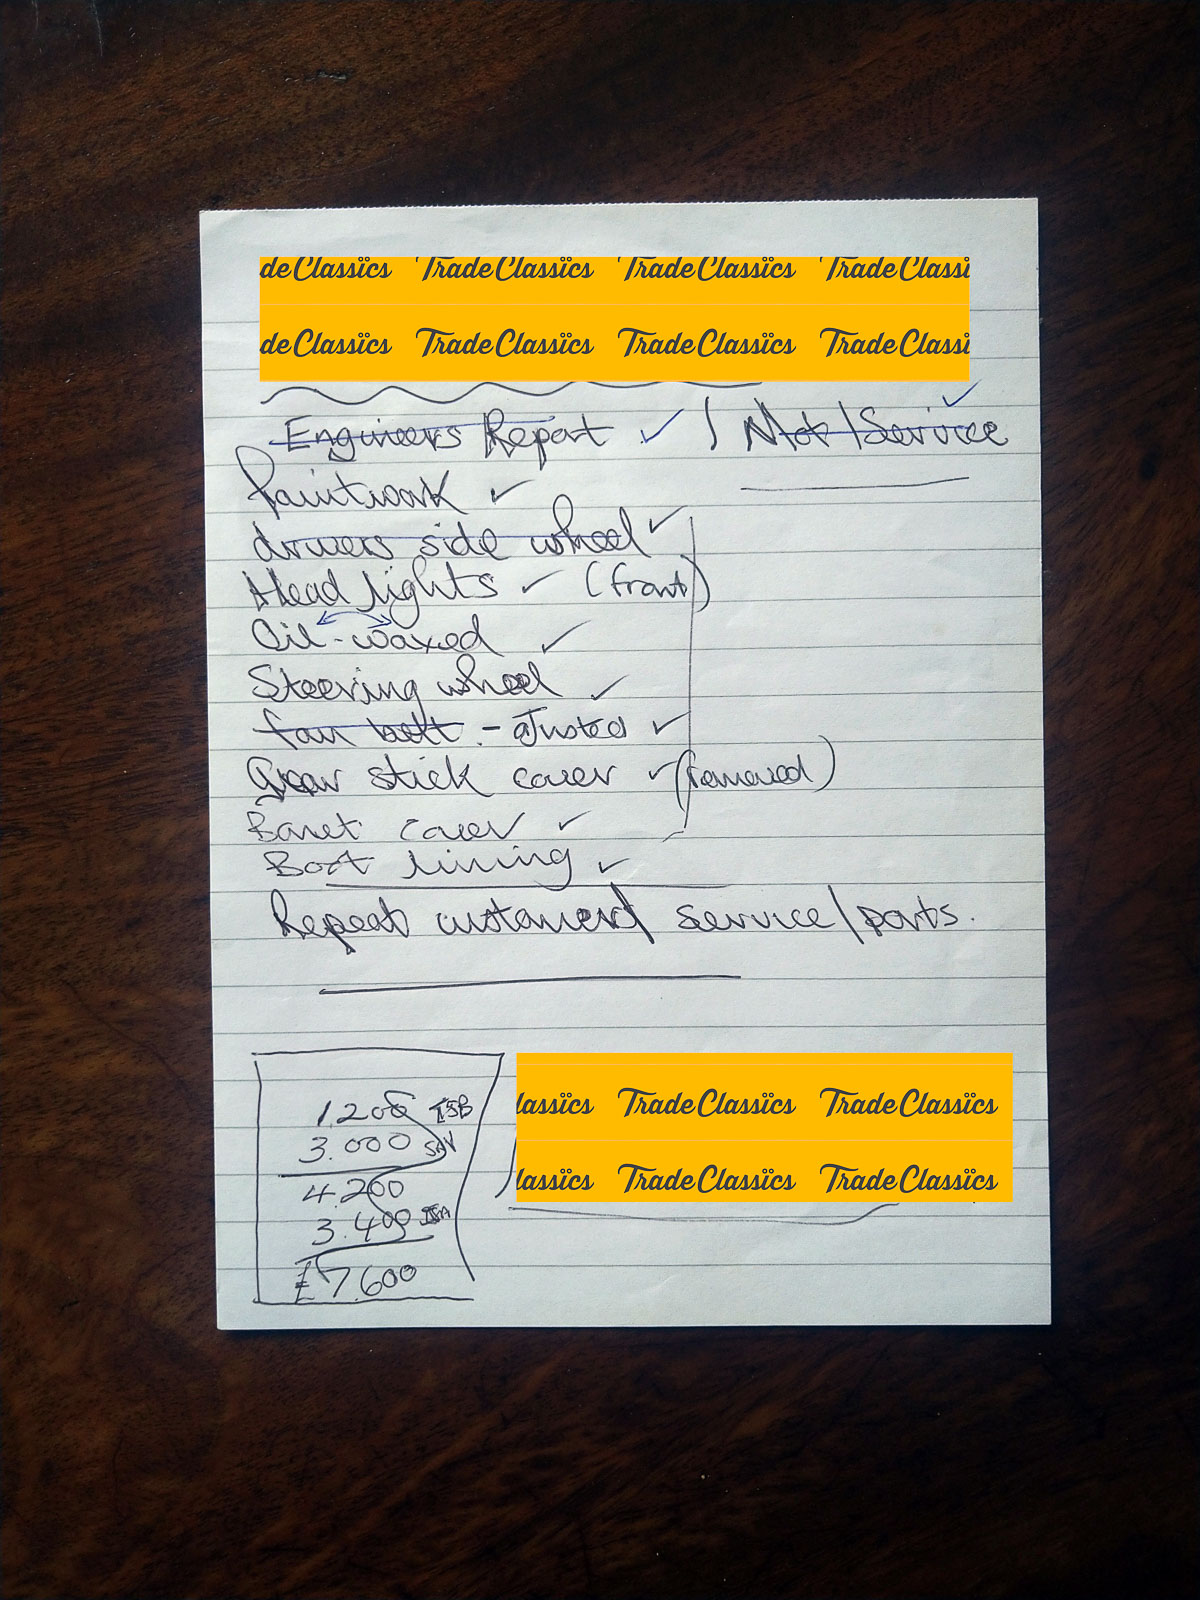 de Classics Trade Classics Trade Classics Trade Classi
de Classics Trade Classics Trade Classics Trade Classi
Engineers Report ✓ / Mot/Service ✓
Paintwork ✓
drivers side wheel ✓
Head lights ✓ (front)
Oil-waxed ✓
Steering wheel ✓
fan belt - aJusted ✓
Gear stick cover ✓ (removed)
Bonet cover ✓
Boot lining ✓
Repeat customers/ service/parts.
1.200 ISB
3.000 SAV
4.200
3.400 ISA
£7.600
lassics Trade Classics Trade Classics
lassics Trade Classics Trade Classics